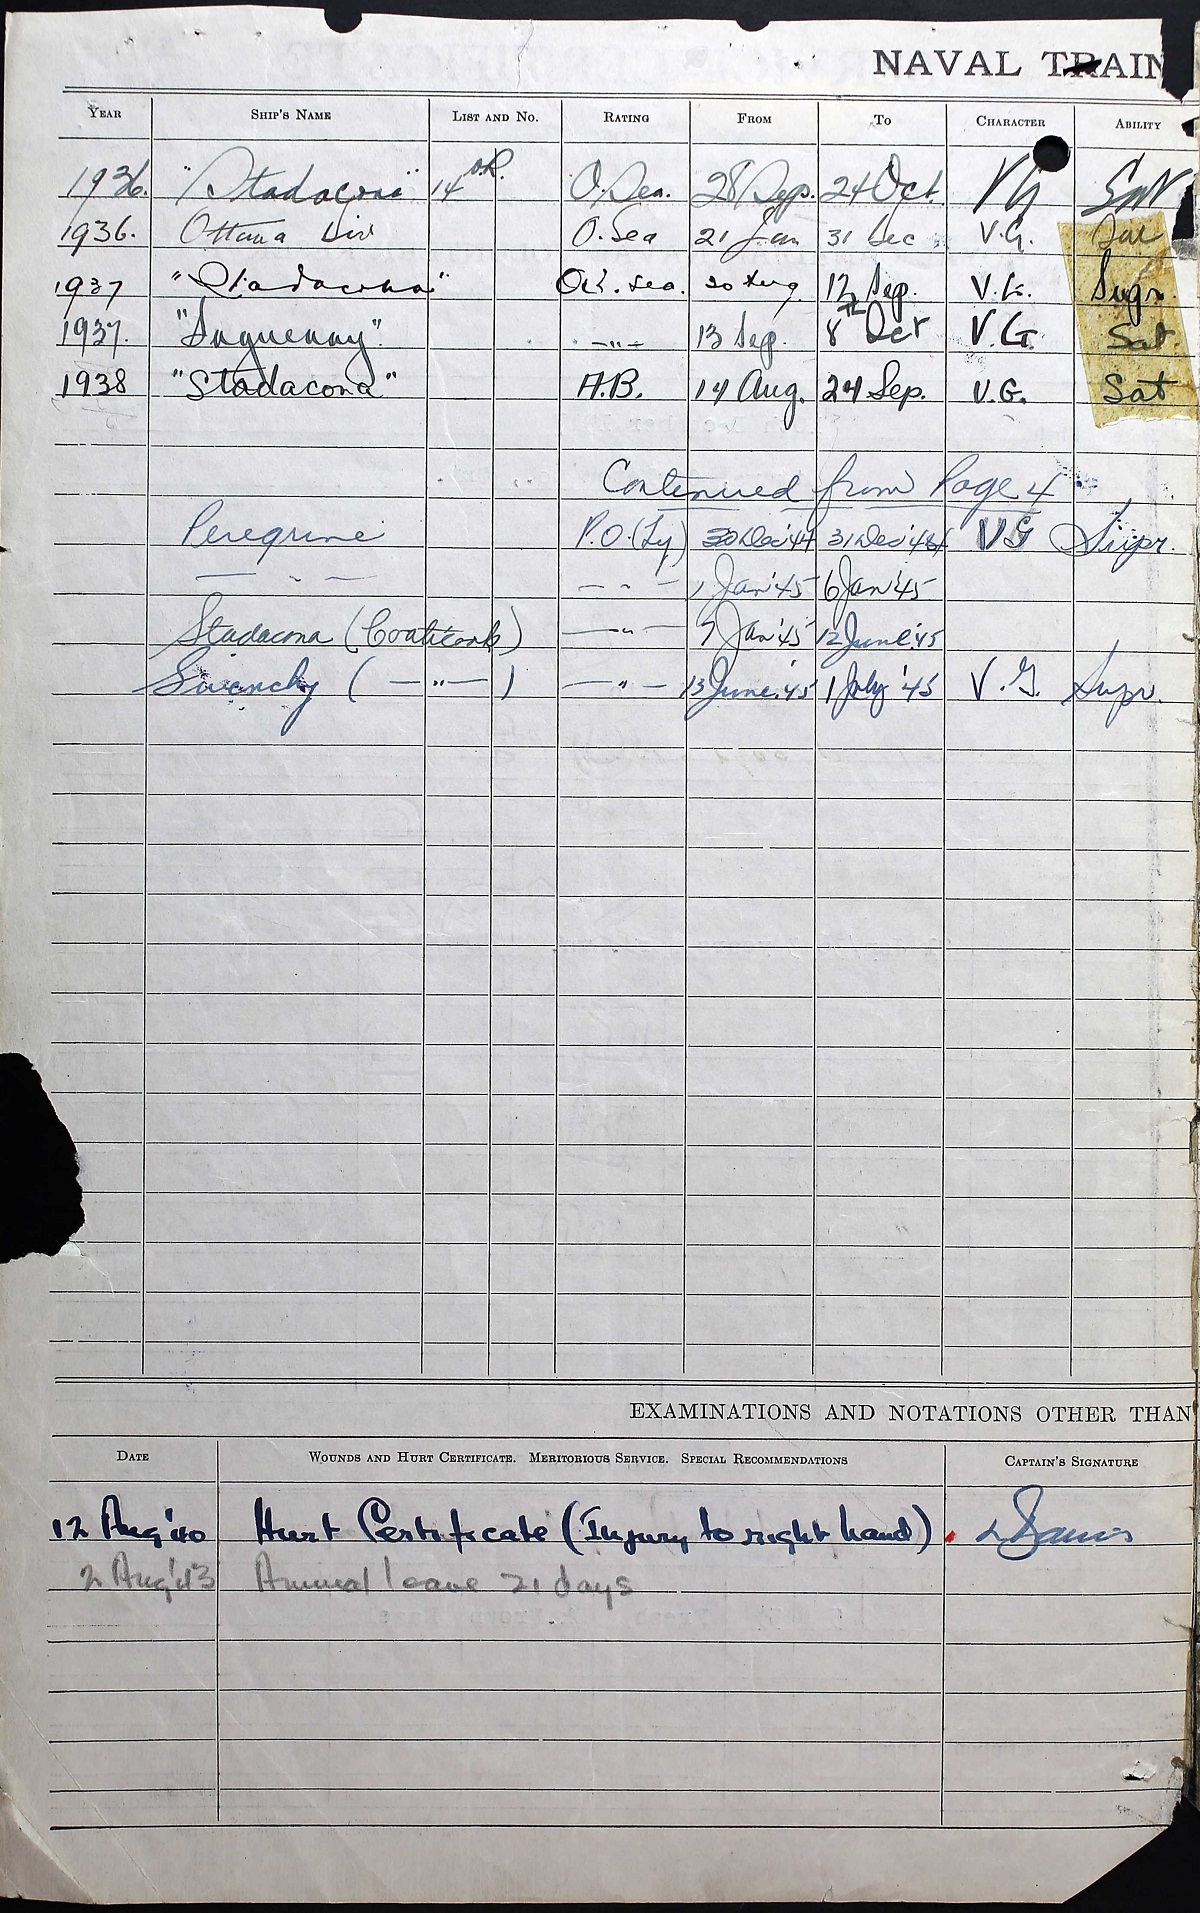 NAVAL TRAIN
YEAR SHIP'S NAME LIST AND NO. RATING FROM TO CHARACTER ABILITY
1936. "Stadacona" 14 O.Sea. 28 Sep. 24 Oct. VG Sat
1936. Ottawa Div O.Sea 21 Jan 31 Dec V.G. Sat
1937 "Stadacona" Ord. Sea. 30 Aug 12 Sep. V.G. Supr.
1937. "Saguenay" -"- 13 Sep. 8 Oct V.G. Sat.
1938 "Stadacona" A.B. 14 Aug. 24 Sep. V.G. Sat
Continued from Page 4
Peregrine P.O.(Ty) 30 Dec '44 31 Dec '44 VG Supr.
— " — — " — 1 Jan '45 6 Jan '45
Stadacona ( ) — " — 7 Jan '45 12 June '45
Givenchy ( — " — ) — " — 13 June '45 1 July '45 V.G. Supr.
EXAMINATIONS AND NOTATIONS OTHER THAN
DATE WOUNDS AND HURT CERTIFICATE. MERITORIOUS SERVICE. SPECIAL RECOMMENDATIONS CAPTAIN'S SIGNATURE
12 Aug '40 Hurt Certificate (Injury to right hand).
2 Aug '43 Annual leave 21 days